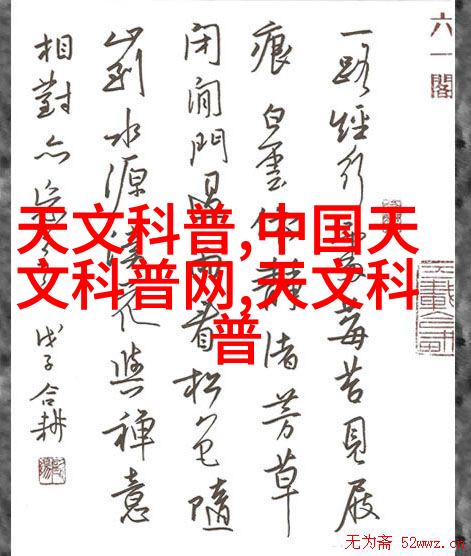 六一閣
一路經行莓苔見屐
痕白雲依靜渚芳草
閉閒門看松色隨
山到水源溪花與禪意
相對亦
戊子合耕
天文科普,中国天
文科普网,天文科
普
无为斋 52wwz.c